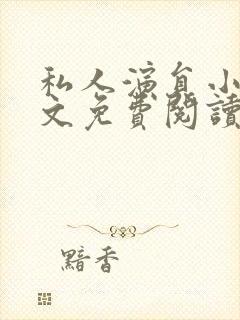 私人演員小
文免費閱讀
黯香